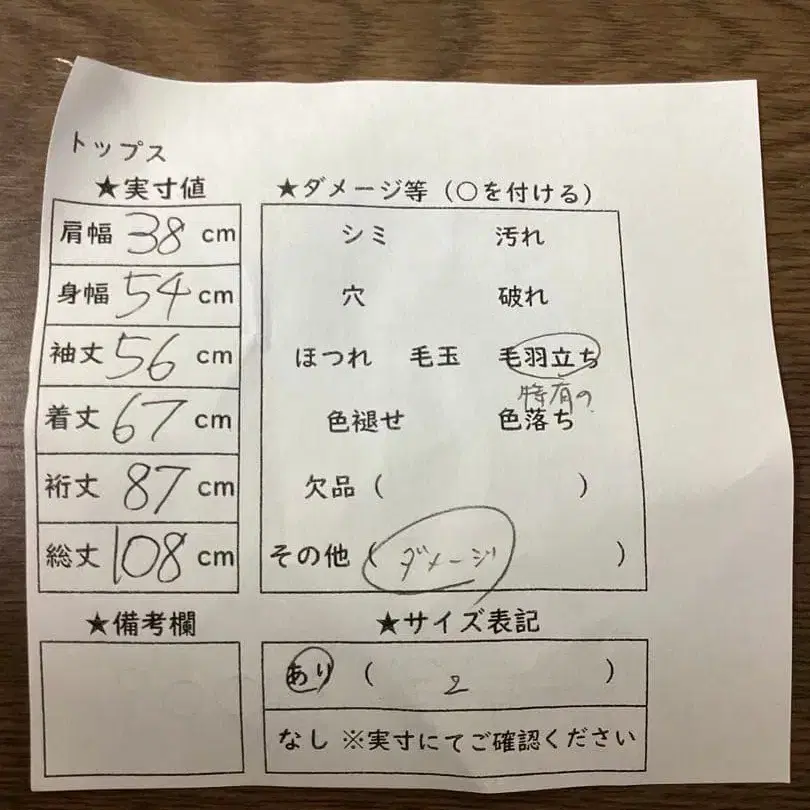 トップス
★実寸値
肩幅 38 cm
身幅 54 cm
袖丈 56 cm
着丈 67 cm
裄丈 87 cm
総丈 108 cm
★ダメージ等（○を付ける）
シミ 汚れ
穴 破れ
ほつれ 毛玉 毛羽立ち
特有の
色褪せ 色落ち
欠品（ ）
その他（ダメージ）
★備考欄
★サイズ表記
あり（ 2 ）
なし ※実寸にてご確認ください